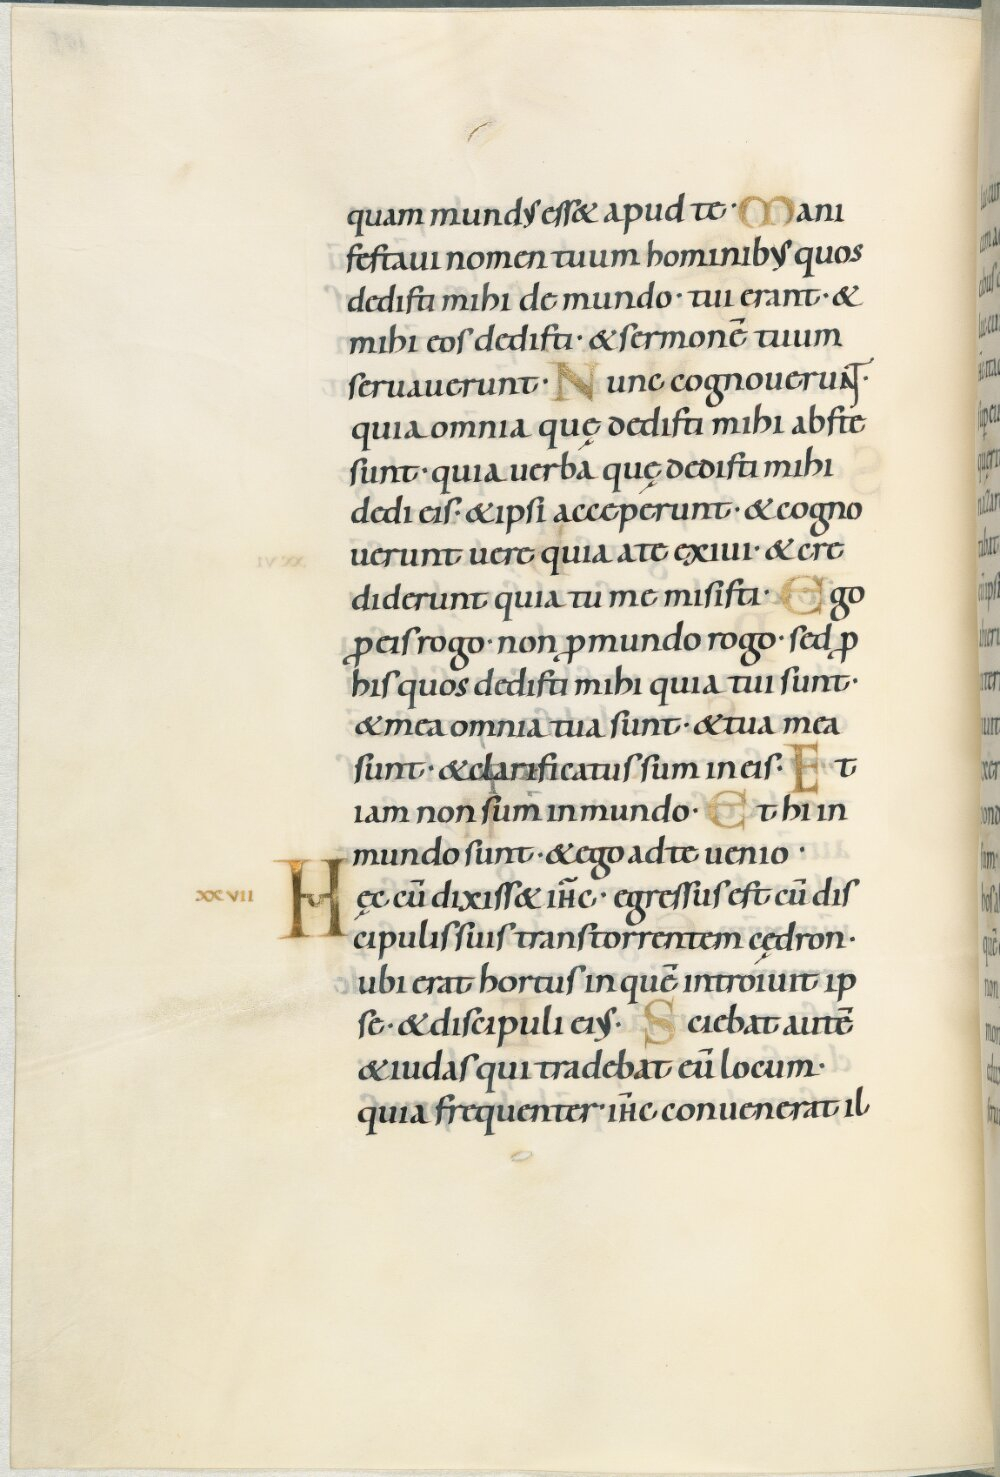 quam mundꝰ ess& apud te· Mani
festaui nomen tuum hominibꝰ quos
dedisti mihi de mundo· tui erant· &
mihi eos dedisti· & sermonē tuum
seruauerunt· Nunc cognouerunt·
quia omnia quę dedisti mihi abs te
sunt· quia uerba quę dedisti mihi
dedi eis· & ipsi acceperunt· & cogno
uerunt uere quia a te exiui· & cre
diderunt quia tu me misisti· Ego
ꝓ eis rogo· non ꝓ mundo rogo· sed ꝓ
his quos dedisti mihi quia tui sunt·
& mea omnia tua sunt· & tua mea
sunt· & clarificatus sum in eis· Et
iam non sum in mundo· Et hi in
mundo sunt· & ego ad te uenio·
XXVII Hęc cū dixiss& ih̄c· egressus est cū dis
cipulis suis trans torrentem cędron·
ubi erat hortus in quē introiuit ip
se· & discipuli eiꝰ· Sciebat autē
& iudas qui tradebat eū locum·
quia frequenter ih̄c conuenerat il